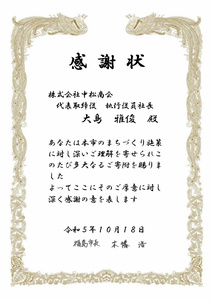 感謝状
株式会社中松商会
代表取締役 執行役員社長
大島 雅俊 殿
あなたは本市のまちづくり施策
に対し深いご理解を寄せられこ
のたび多大なるご寄附を賜りま
した
よってここにそのご厚意に対し
深く感謝の意を表します
令和5年10月18日
福島市長 木幡 浩